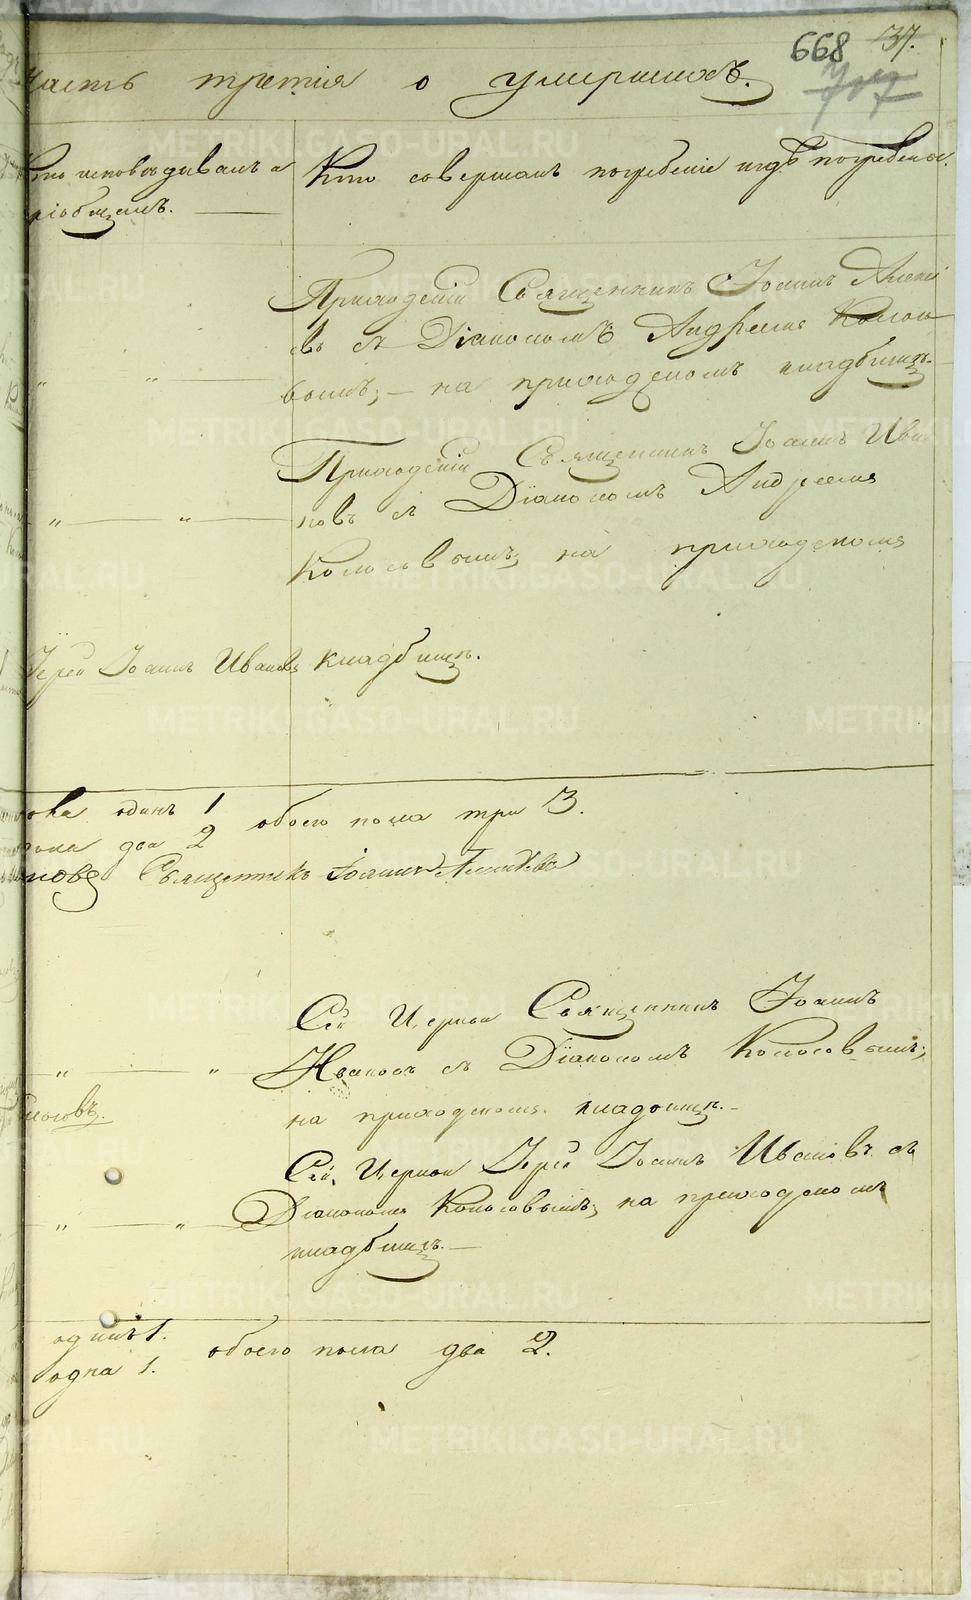 668 37.
Часть третiя о умершихъ.
Кто исповѣдывалъ и
прiобщалъ.
Кто совершалъ погребенiе и гдѣ погребены.
Приходскiй Священникъ Iоаннъ
въ съ Дiакономъ Андреемъ Колосо-
вымъ; - на приходскомъ кладбищѣ.
Приходскiй Священникъ Iоаннъ Ива-
новъ съ Дiакономъ Андреемъ
Колосовымъ, на приходскомъ
Iерей Iоаннъ Ивановъ кладбищѣ.
пола одинъ 1
обоего пола три 3.
пола два 2
новъ Священникъ Iоаннъ
Сей Церкви Священникъ Iоаннъ
Ивановъ съ Дiакономъ Колосовымъ;
на приходскомъ кладбищѣ. -
лосовъ.
Сей Церкви Iерей Iоаннъ Ивановъ съ
Дiакономъ Колосовымъ, на приходскомъ
кладбищѣ. -
одинъ 1.
обоего пола два 2.
одна 1.
METRIKI.GASO-URAL.RU